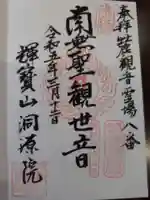 奉拝 観音霊場八番
南無聖観世音
令和五年三月十二日
輝寳山洞源院